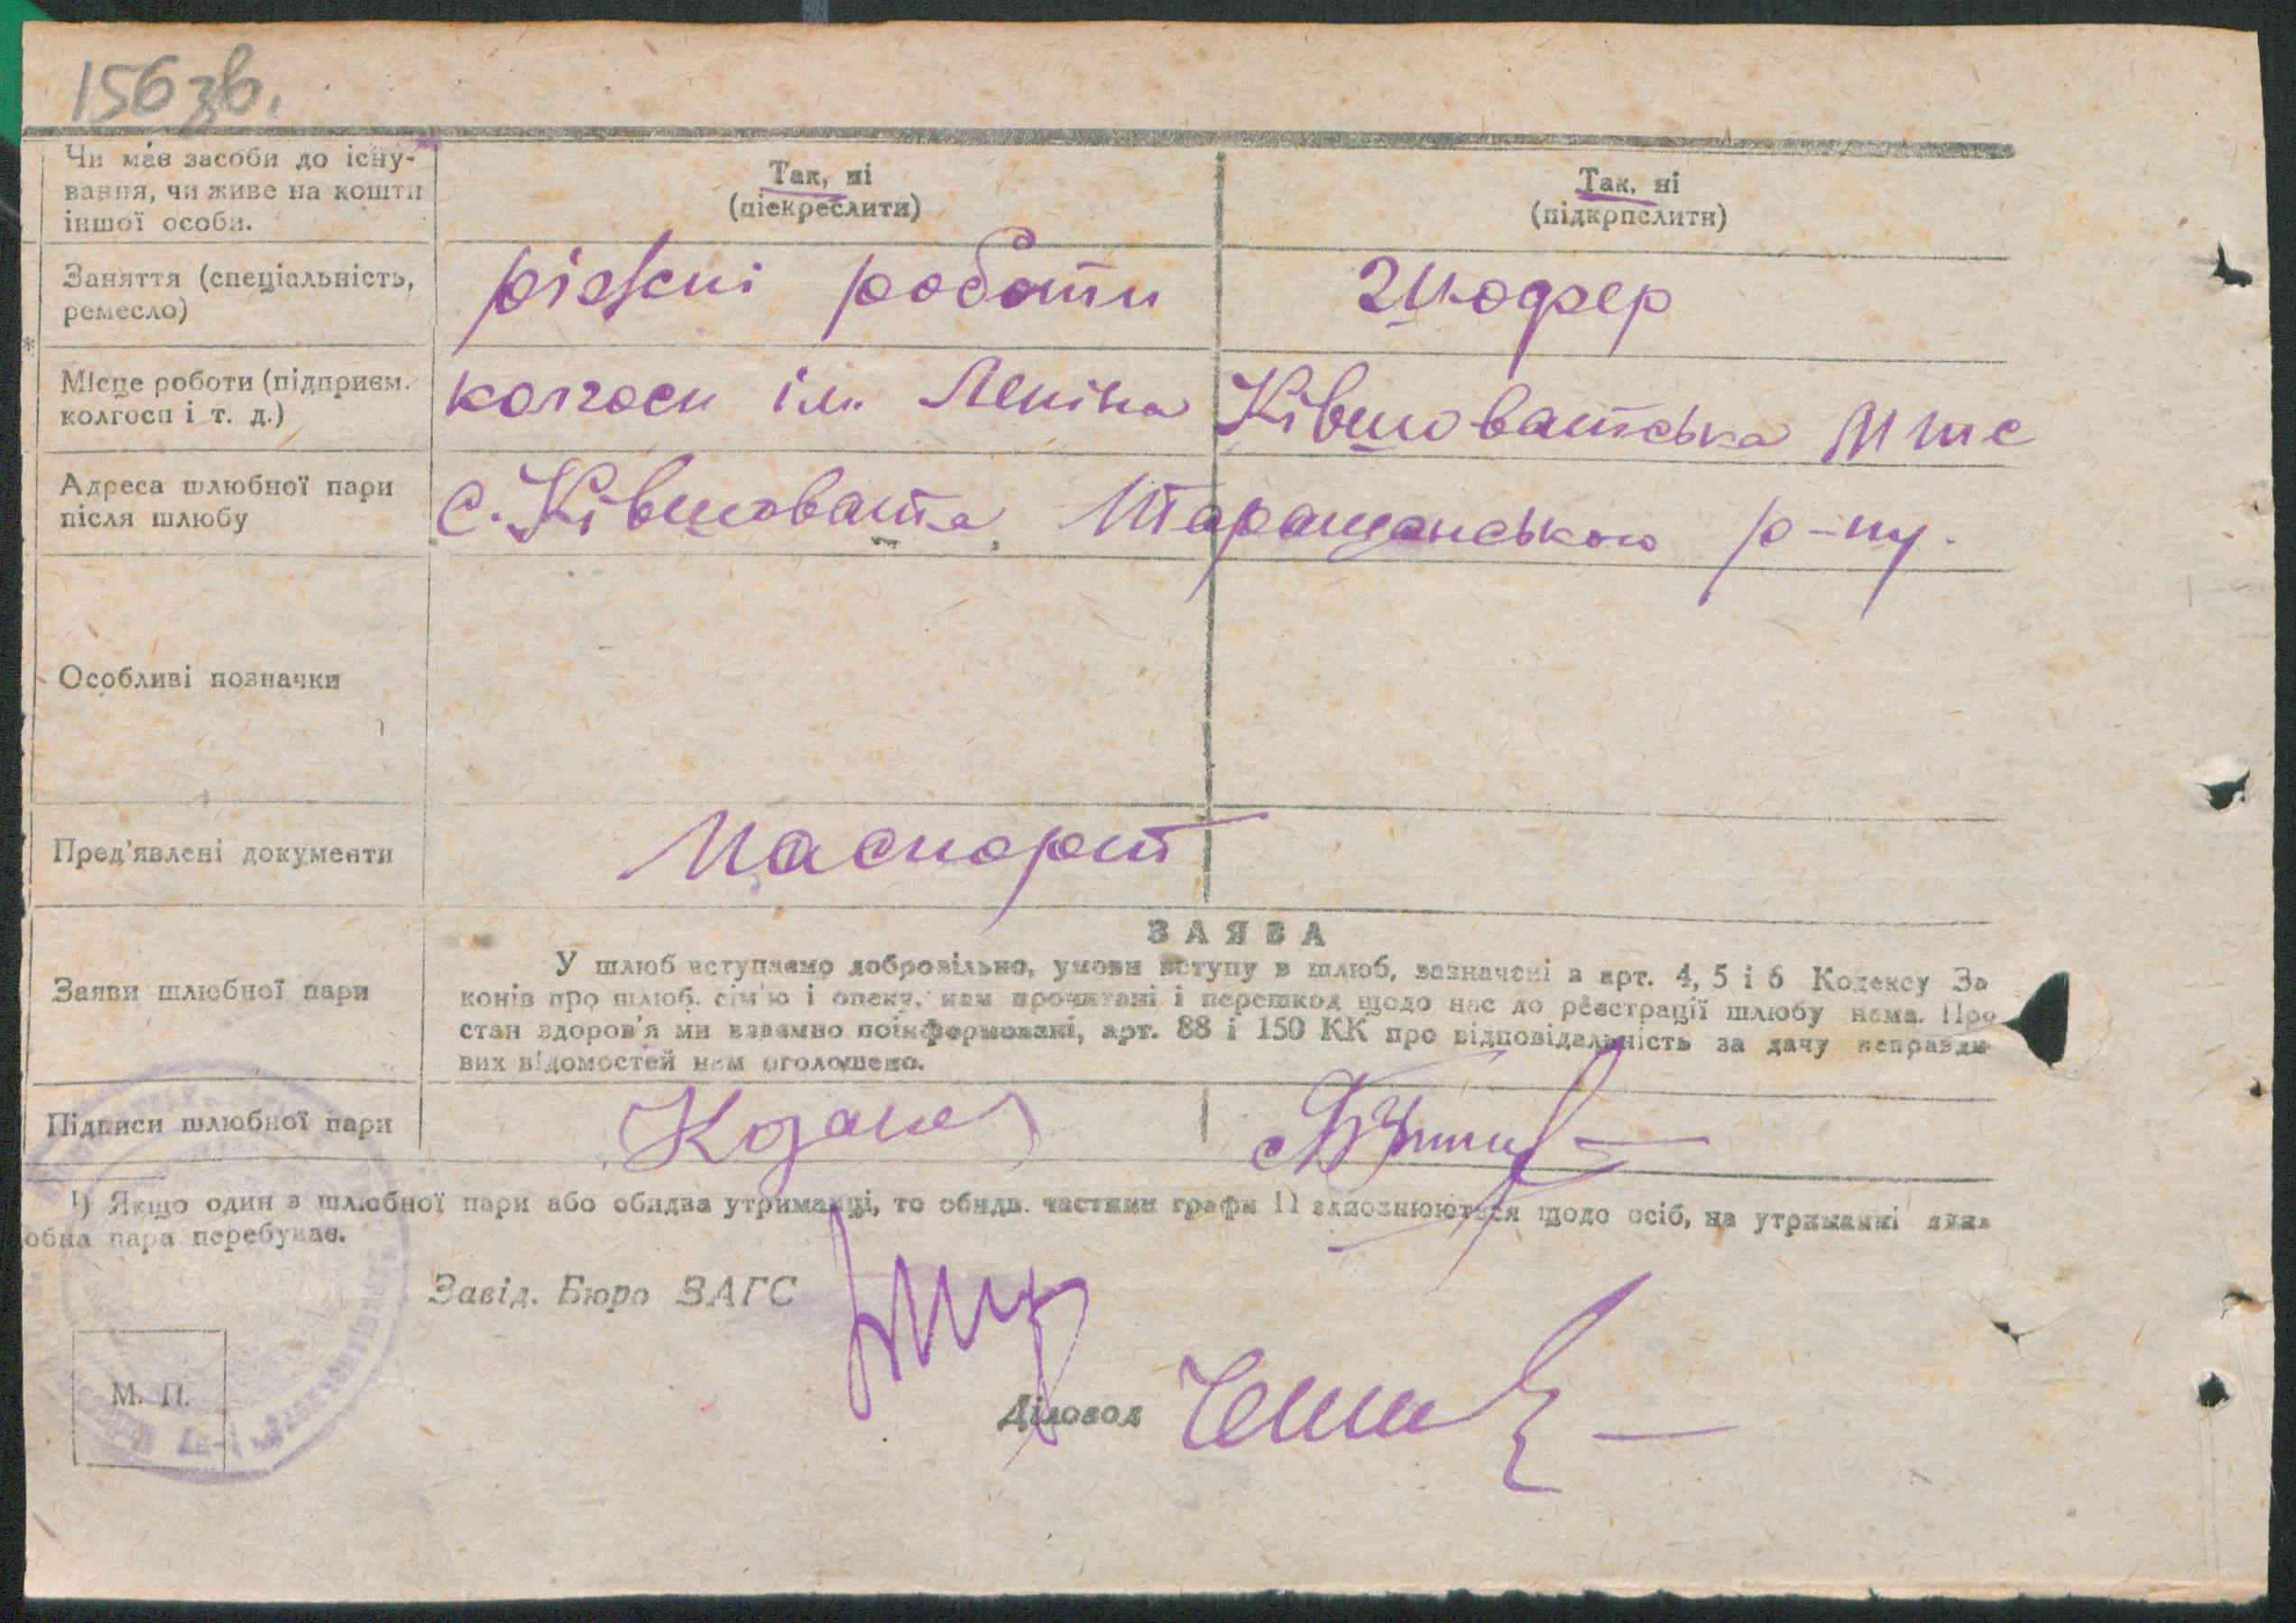 156 зв.
Чи має засоби до існу-
вання, чи живе на кошти
іншої особи.
Так, ні
(підкреслити)
Так, ні
(підкрпслити)
Заняття (спеціальність,
ремесло)
різкні роботи
Шофер
Місце роботи (підприєм.
колгосп і т. д.)
колгосп ім. Леніна
Ківшоватська МТС
Адреса шлюбної пари
після шлюбу
с. Ківшовата, Таращанського р-ну.
Особливі позначки
Пред'явлені документи
Паспорт
Заяви шлюбної пари
ЗАЯВА
У шлюб вступаемо добровільно, умови вступу в шлюб, зазначені в арт. 4, 5 і 6 Кодексу За
конів про шлюб. сім'ю і опеку, нам прочитані і перешкод щодо нас до реєстрації шлюбу нема. Про
стан здоров'я ми взаємно поінформовані, арт. 88 і 150 КК про відповідальність за дачу неправди
вих відомостей нам оголошено.
Підписи шлюбної пари
1) Якщо один з шлюбної пари або обидва утриманці, то обидв. частини графи 11 заповнюються щодо осіб, на утриманні яких
обна пара перебуває.
Завід. Бюро ЗАГС
М. П.
Діловод